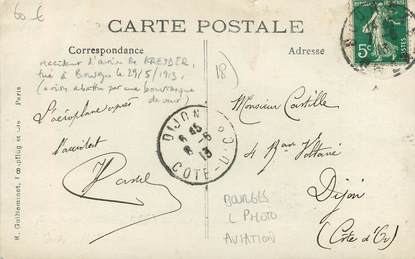 60 €
CARTE POSTALE
Correspondance
Adresse
accident d'avion de KREYDER,
tué à Bourges le 29/5/1913,
(avion abattu par une bourrasque
de vent)
18
5c
L'aéroplane après
l'accident
DIJON
8 45
8-6
13
COTE-D'OR
Monsieur Castille
4 Rue Voltaire
Dijon
(Côte d'Or)
BOURGES
L PHOTO
AVIATION
H. Guilleminot, Paris